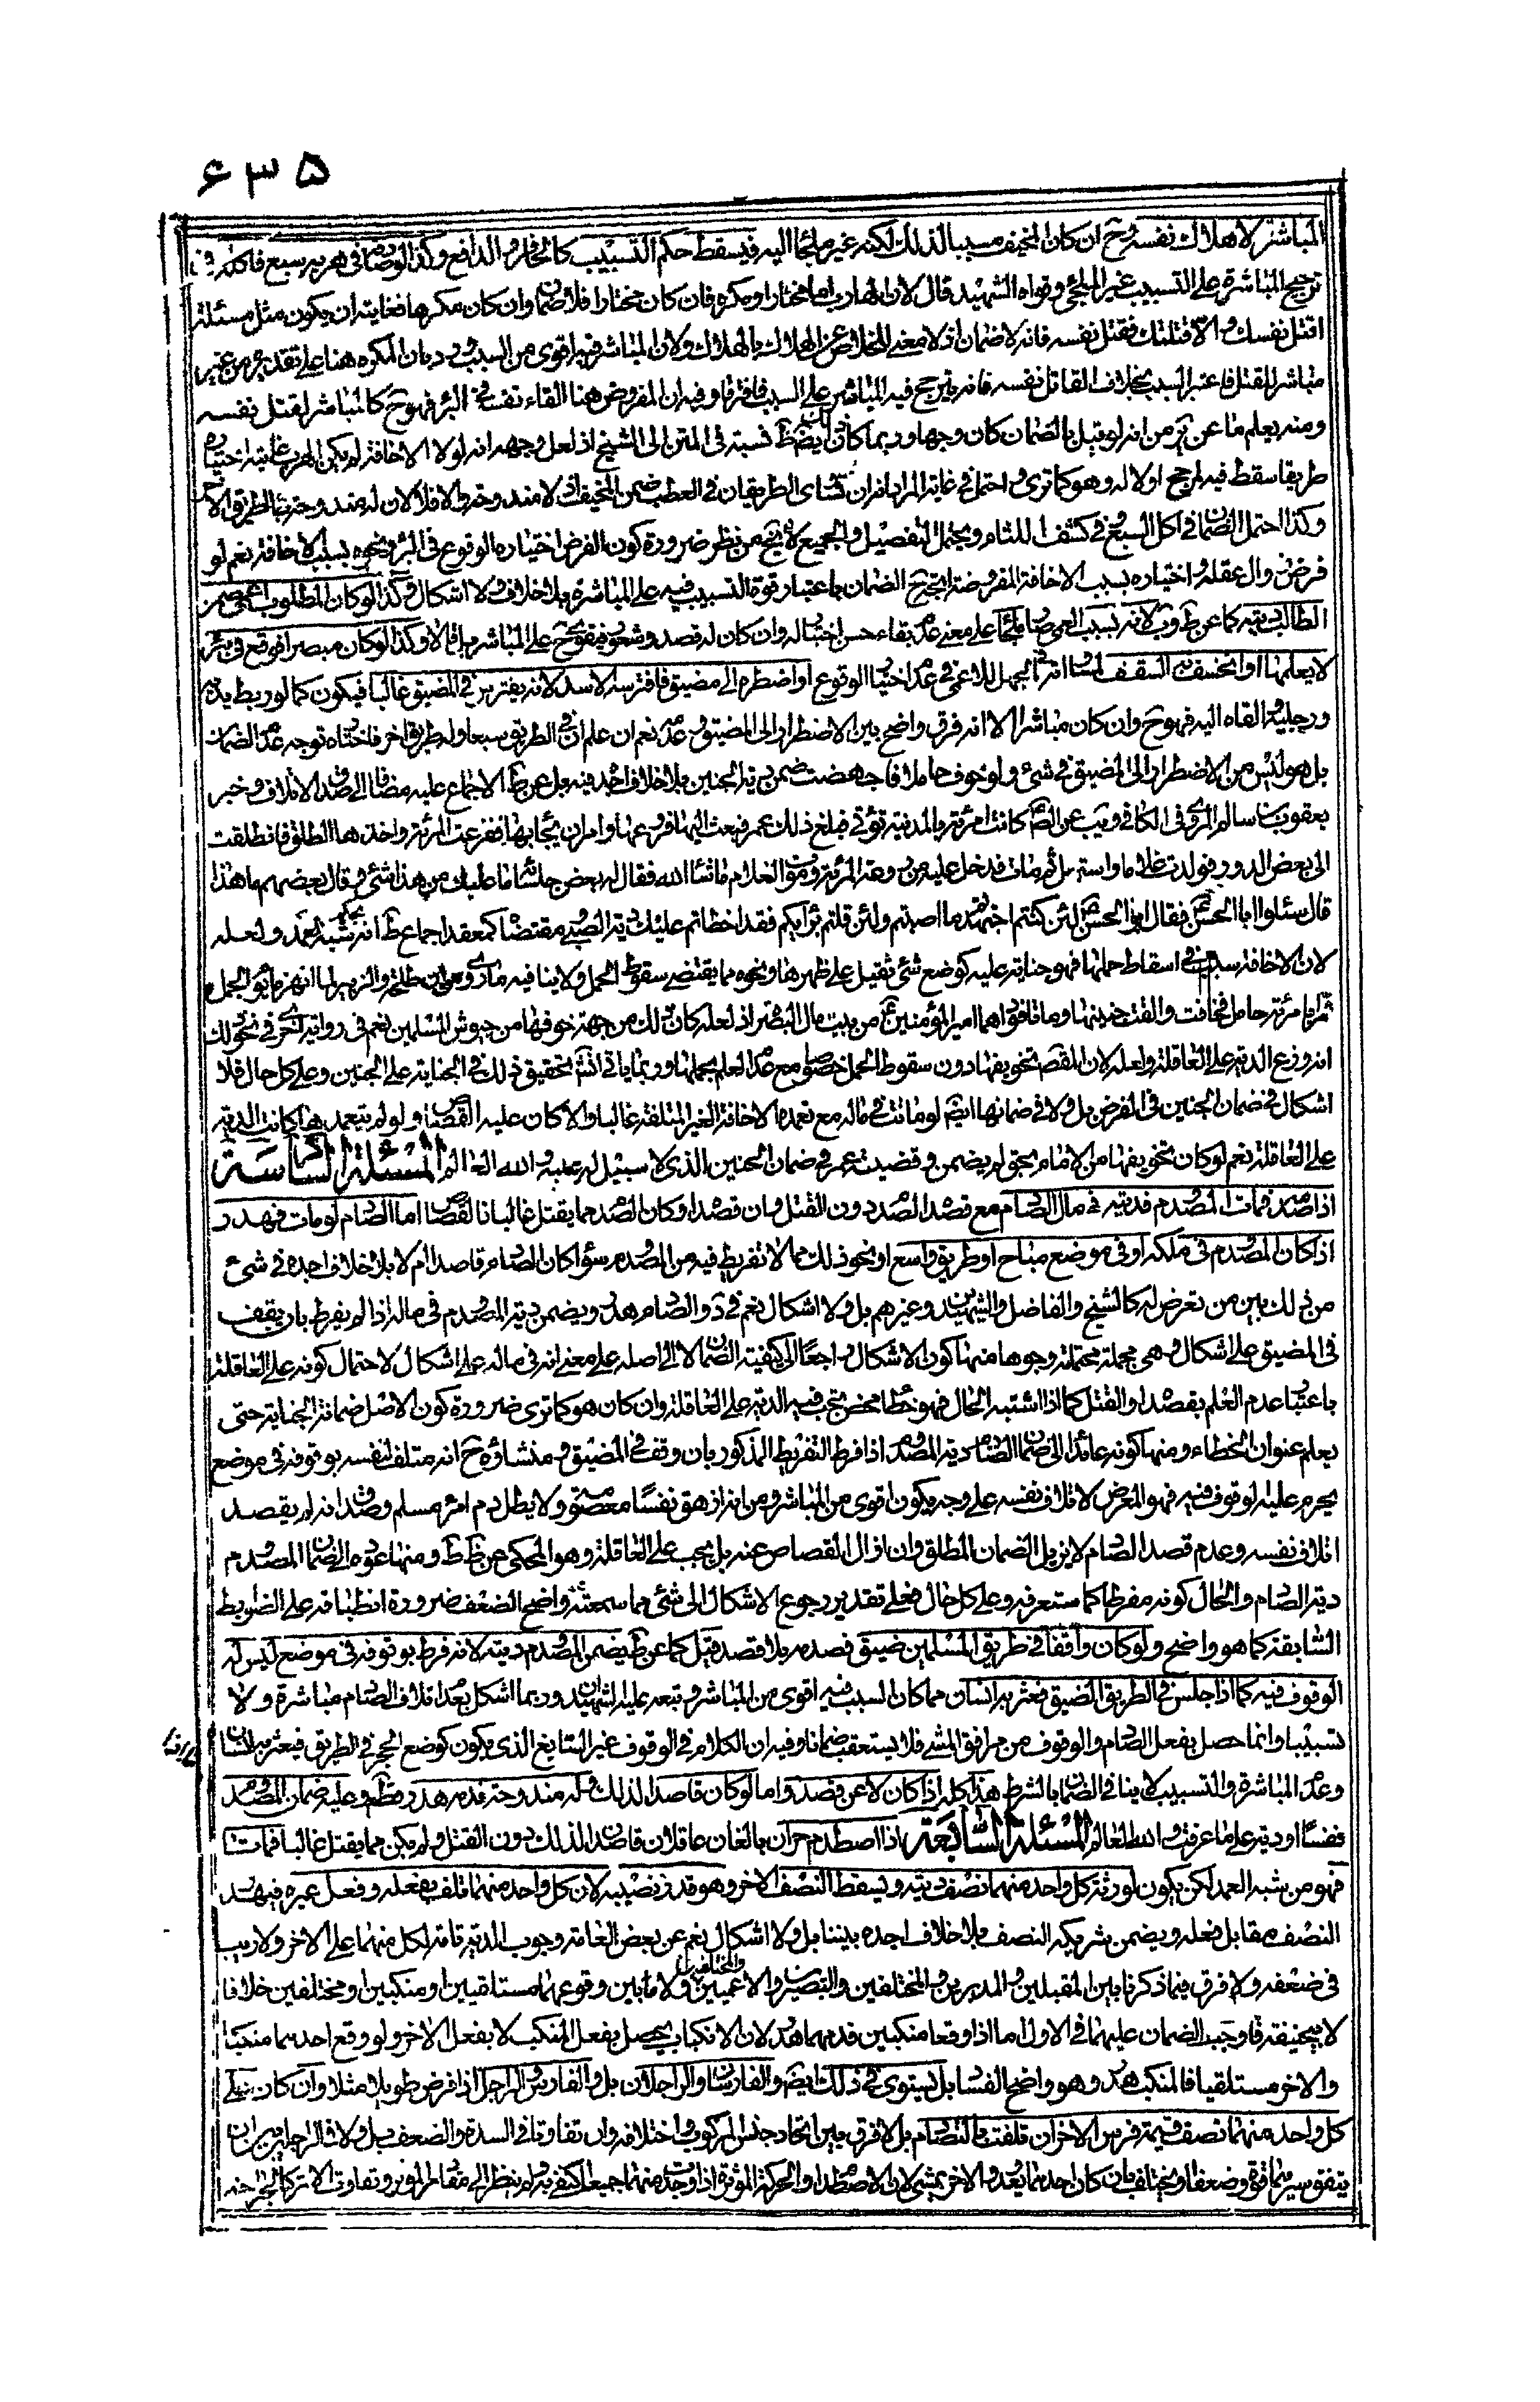 ۶۳۵
المباشر لاهلاك نفسه وح ان كان المخيف مسببا لذلك لكنه غير ملجأ اليه فيسقط حكم التسبيب كالحافر والدافع وكذا لو صادفه في هربه سبع فاكله
ترجيح المباشرة على التسبيب غير الملجئ وقواه الشهيد قال لان الهارب اما مختار او مكره فان كان مختارا فلا ضمان وان كان مكرها فغايته ان يكون مثل مسئلة
اقتل نفسك والا قتلتك فقتل نفسه فانه لا ضمان اذ لا معنى للخلاص عن الهلاك بالهلاك ولان المباشر فيه اقوى من السبب ورد بان المكره هنا على تقديره من غير
مباشر للقتل فاعتبر السبب بخلاف القاتل نفسه فانه يترجح فيه المباشر على السبب فافترقا وفيه ان المفروض هنا القاء نفسه في البئر فهو ح كالمباشر لقتل نفسه
ومنه يعلم ما عن ير من انه لو قيل بالضمان كان وجها وربما كان نسبته في المتن الى الشيخ اذ لعل وجهه انه لولا الاخافة لم يكن الهرب
طريقا سقط فيه لمرجح اولا له وهو كما ترى واحتمل في غاية المرام ان تساوى الطريقان في العطب ضمن المخيف اذ لا مندوحة والا فلا لان له مندوحة بالطريق الاخر
وكذا احتمل الضمان في اكل السبع وفي كشف اللثام ويحتمل التفصيل والجميع لا يخ من نظر ضرورة كون الفرض اختياره الوقوع في البئر ونحوه بسبب الاخافة نعم لو
فرض زوال عقله واختياره بسبب الاخافة المفروضة اتجه الضمان باعتبار قوة التسبيب فيه على المباشرة بلا خلاف ولا اشكال وكذا لو كان المطلوب اعمى ضمن
الطالب ديته كما عن ط وب لانه بسبب العمى صار ملجأ على معنى عدم بقاء حسن اختيار له وان كان له قصد وشعور فيقوى ح على المباشر
لا يعلمها او انخسف به السقف لمساواته الجهل للاعمى في عدم اختيار الوقوع او اضطره الى مضيق فافترسه الاسد لانه يفترس في المضيق غالبا فيكون كما لو ربط يديه
ورجليه والقاه اليه فهو ح وان كان مباشرا الا انه فرق واضح بين الاضطرار الى المضيق وعدمه نعم ان علم ان في الطريق سبعا وله طريق اخر فاختاره توجه عدم الضمان
بل هو ليس من الاضطرار الى المضيق في شئ ولو خوف حاملا فاجهضت ضمن دية الجنين بلا خلاف اجده فيه بل عن ظ الاجماع عليه مضافا الى صدق الاتلاف وخبر
يعقوب بن سالم المروي في الكافي ويب عن الص كانت امرئة بالمدينة تؤتى فبلغ ذلك عمر فبعث اليها فروعها وامر ان يجاء بها ففزعت المرئة واخذها الطلق فانطلقت
الى بعض الدور فولدت غلاما واستهل ثم مات فدخل عليه من روعة المرئة وموت الغلام ما شاء الله فقال له بعض جلسائه ما عليك من هذا شئ وقال بعضهم ما هذا
قال سئلوا ابا الحسن فقال ابو الحسن لئن كنتم اجتهدتم ما اصبتم ولئن قلتم برأيكم فقد اخطاتم عليك دية الصبي مقتضاه كمعقد اجماع ظ انه شبه العمد ولعله
لان الاخافة سبب في اسقاط حملها فهو جناية عليه كوضع شئ ثقيل على ظهرها ونحوه مما يقتضى سقوط الحمل ولا ينافيه ما روى من ان طلحة والزبير لما انهزما يوم الجمل
مرا بامرئة حامل فخافت والقت جنينها وماتا فوداهما امير المؤمنين ع من بيت مال البصرة اذ لعله كان ذلك من جهة خوفها من جيوش المسلمين نعم في رواية اخرى في نحو ذلك
انه وزع الدية على العاقلة ولعله لان المقصد تخويفها دون سقوط الحمل خصوصا مع عدم العلم بحملها وربما ياتي انش تحقيق ذلك في الجناية على الجنين وعلى كل حال فلا
اشكال في ضمان الجنين في الفرض بل ولا في ضمانها ايضا لو ماتت في ماله مع تعمده الاخافة الغير المتلفة غالبا والا كان عليه القصاص ولو لم يتعمدها كانت الدية
على العاقلة نعم لو كان تخويفها من الامام بحق لم يضمن وقضية عمر في ضمان الجنين الذي لا سبيل له عليه والله العالم المسئلة السادسة
اذا صدمه فمات المصدوم فديته في مال الصادم مع قصد الصدم دون القتل وان قصده او كان الصدم مما يقتل غالبا فالقصاص اما الصادم لو مات فهدر
اذا كان المصدوم في ملكه او في موضع مباح او طريق واسع او نحو ذلك مما لا تفريط فيه من المصدوم سواء كان الصادم قاصدا ام لا بلا خلاف اجده في شئ
من ذلك بين من تعرض له كالشيخ والفاضل والشهيدين وغيرهم بل ولا اشكال نعم في دم الصادم هدر ويضمن دية المصدوم في ماله اذا لم يفرط بان يقف
في المضيق على اشكال وهي مجملة محتملة وجوها منها كون الاشكال راجعا الى كيفية الضمان لا الى اصله على معنى انه في ماله على اشكال لاحتمال كونه على العاقلة
باعتبار عدم العلم بقصد او القتل كما اذا اشتبه الحال فهو خطأ محض يجب فيه الدية على العاقلة وان كان هو كما ترى ضرورة كون الاصل ضمان الجناية حتى
يعلم عنوان الخطاء ومنها كونه عائدا الى ضمان الصادم دية المصدوم اذا فرط التفريط المذكور بان وقف في المضيق ومنشاؤه ح انه متلف لنفسه بوقوفه في موضع
يحرم عليه الوقوف فيه فهو المعرض لاتلاف نفسه على وجه يكون اقوى من المباشر ومن انه ازهق نفسا معصومة ولا يطل دم امرء مسلم وصدق انه لم يقصد
اتلاف نفسه وعدم قصد الصادم لا يزيل الضمان المطلق وان ازال القصاص عنه بل يجب على العاقلة وهو المحكي عن ظ ط ومنها عوده الى ضمان المصدوم
دية الصادم والحال كونه مفرطا كما ستعرفه وعلى كل حال فعلى تقدير رجوع الاشكال الى شئ مما سمعته واضح الضعف ضرورة انطباقه على الضوابط
السابقة كما هو واضح ولو كان واقفا في طريق المسلمين ضيق فصدمه بلا قصد قيل كما عن ط يضمن المصدوم ديته لانه فرط بوقوفه في موضع ليس له
الوقوف فيه كما اذا جلس في الطريق المضيق فعثر به انسان مما كان السبب فيه اقوى من المباشر وتبعه عليه الشهيدان وربما اشكل بعدم اتلاف الصادم مباشرة ولا
تسبيبا وانما حصل بفعل الصادم والوقوف من مرافق المشى فلا يستعقب ضمانا وفيه ان الكلام في الوقوف غير السائغ الذي يكون كوضع الحجر في الطريق فيعثر به انسان
وعدم المباشرة والتسبيب لا ينافي الضمان بالشرط هذا كله اذا كان لا عن قصد واما لو كان قاصدا لذلك وله مندوحة فدمه هدر وعليه ضمان المصدوم
نفسا او دية على ما عرفت والله العالم المسئلة السابعة اذا اصطدم حران بالغان عاقلان قاصدان لذلك دون القتل ولم يكن مما يقتل غالبا فماتا
فهو من شبه العمد لكن يكون لورثة كل واحد منهما نصف ديته ويسقط النصف الاخر وهو قدر نصيبه لان كل واحد منهما تلف بفعله وفعل غيره فيهدر
النصف مقابل فعله ويضمن شريكه النصف بلا خلاف اجده بيننا بل ولا اشكال نعم عن بعض العامة وجوب الدية تامة لكل منهما على الاخر ولا ريب
في ضعفه ولا فرق فيما ذكرنا بين المقبلين والمدبرين والمختلفين والبصيرين والاعميين والمختلفين ولا بين وقوعهما مستلقيين او منكبين او مختلفين خلافا
لابي حنيفة فاوجب الضمان عليهما في الاول اما اذا وقعا منكبين فدمهما هدر لان الانكباب يحصل بفعل المنكب لا بفعل الاخر ولو وقع احدهما منكبا
والاخر مستلقيا فالمنكب هدر وهو واضح الفساد بل يستوى في ذلك ايضا الفارسان والراجلان بل والفارس والراجل اذا فرض طويلا مثلا وان كان على
كل واحد منهما نصف قيمة فرس الاخر ان تلفت بالتصادم بل لا فرق بين اتحاد جنس المركوب واختلافه وان تفاوتا في الشدة والضعف بل ولا في الراجلين بين ان
يتفق سيرهما قوة وضعفا او يختلف بان كان احدهما يعدو والاخر يمشى لان الاصطدام والحركة المؤثرة اذا وجدت منهما جميعا